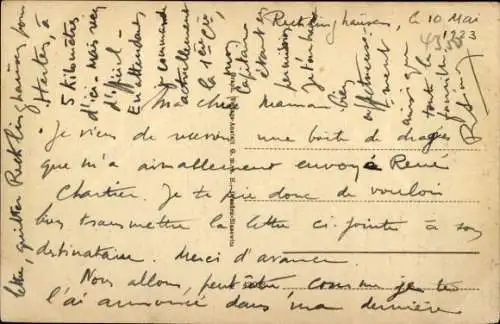 Recklinghausen, le 10 Mai
1923
Ma chère Maman
Je viens de recevoir une boite de dragées
que m'a aimablement envoyé René
Chartier. Je te prie donc de vouloir
bien transmettre la lettre ci-jointe à son
destinataire. Merci d'avance
Nous allons, peut être comme je te
l'ai annoncé dans ma dernière
lettre, quitter Recklinghausen pour
Herten, à
5 kilomètres
d'ici. mais rien
d'officiel.
En attendant
je commande
actuellement
la 1ère Cie,
mon
capitaine
étant en
permission
Je t'embrasse
bien
affectueuse-
ment
ainsi que
toute la
famille